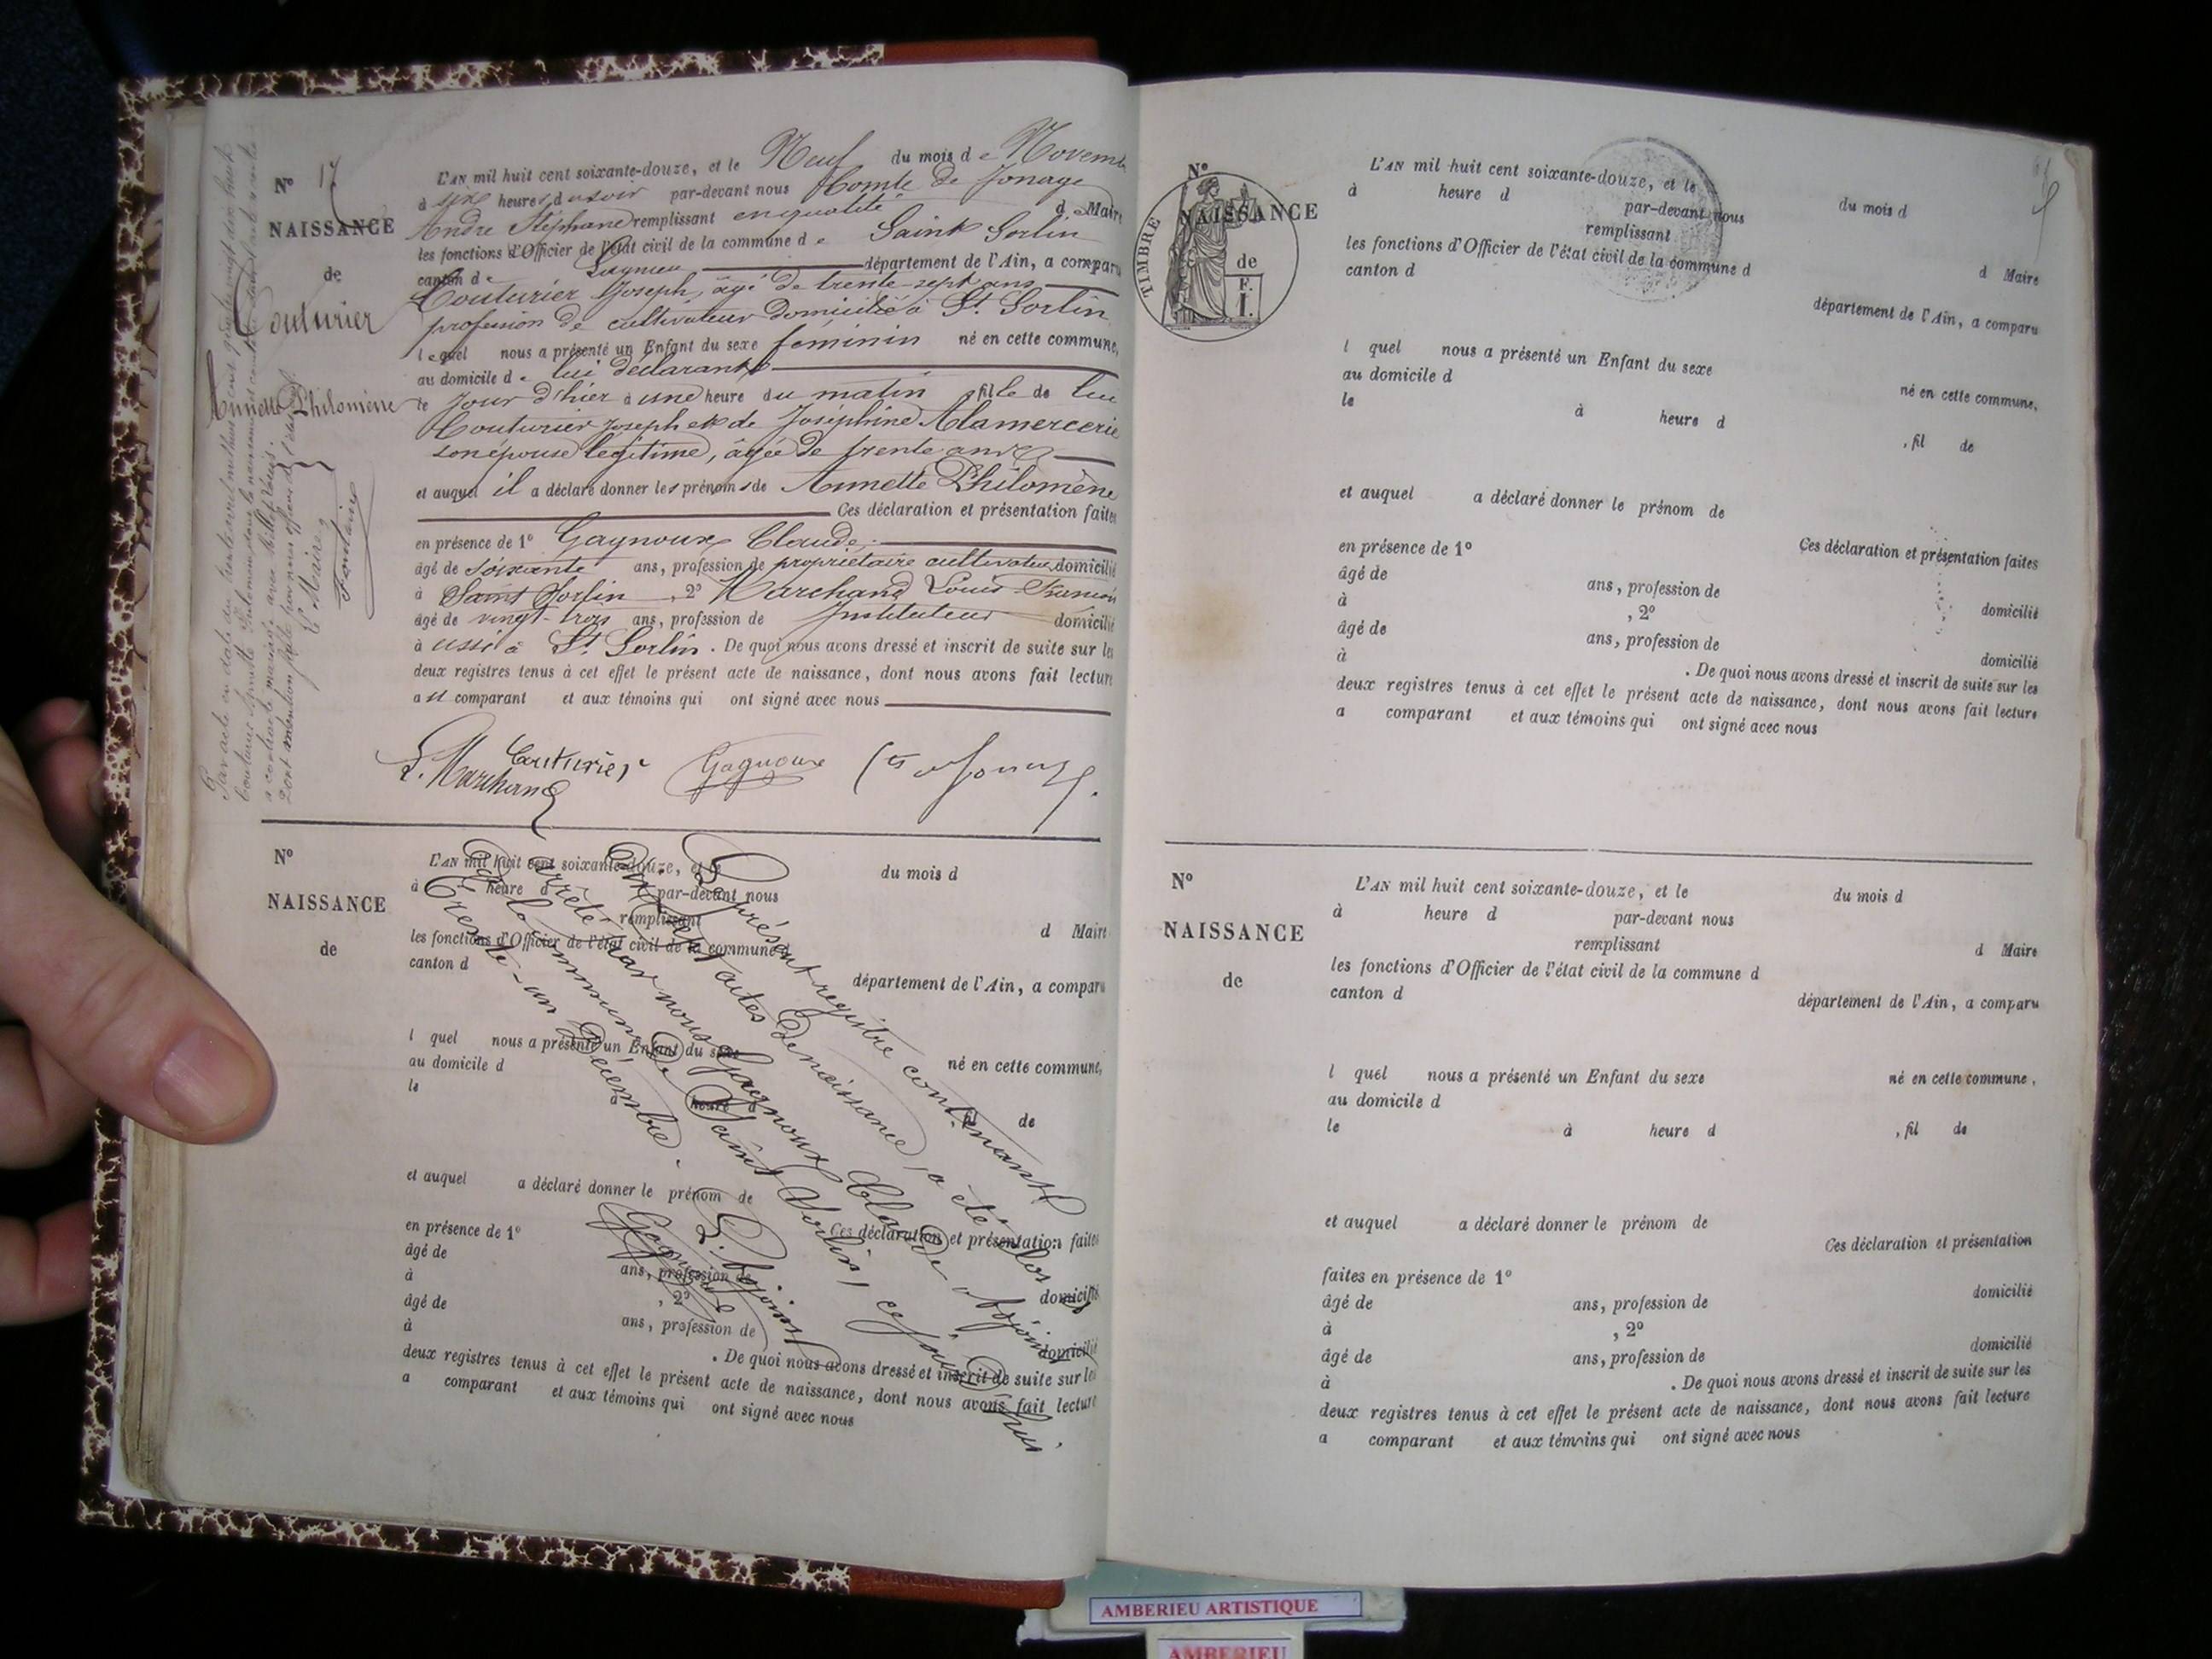 N° 17
NAISSANCE
de
Couturier
Annette Philomène
L'AN mil huit cent soixante-douze, et le Neuf du mois de Novemb
à six heures du soir par-devant nous Comte de Jonage
André Stéphane remplissant en qualité de Maire
les fonctions d'Officier de l'état civil de la commune de Saint Sorlin
canton de Lagnieu département de l'Ain, a comparu
Couturier Joseph, âgé de trente-sept ans
profession de cultivateur domicilié à St. Sorlin
lequel nous a présenté un Enfant du sexe féminin né en cette commune,
au domicile de lui déclarant
le jour d'hier à une heure du matin, fille de lui
Couturier Joseph et de Joséphine Alamercerie
son épouse légitime, âgée de trente ans
et auquel il a déclaré donner les prénoms de Annette Philomène
Ces déclaration et présentation faites
en présence de 1° Gagnoux Claude,
âgé de soixante ans, profession de propriétaire cultivateur domicilié
à Saint Sorlin, 2° Marchand Louis
âgé de vingt-trois ans, profession de Instituteur domicilié
à ussi à St. Sorlin. De quoi nous avons dressé et inscrit de suite sur les
deux registres tenus à cet effet le présent acte de naissance, dont nous avons fait lecture
au comparant et aux témoins qui ont signé avec nous
Couturier Gagnoux
L. Marchand
le Maire,
N°
NAISSANCE
de
L'AN mil huit cent soixante-douze, et le du mois d
à heure d par-devant nous
remplissant d Maire
les fonctions d'Officier de l'état civil de la commune d
canton d département de l'Ain, a comparu
l quel nous a présenté un Enfant du sexe né en cette commune,
au domicile d
le à heure fil de
et auquel a déclaré donner le prénom de
Ces déclaration et présentation faites
en présence de 1°
âgé de ans, profession de domicilié
à , 2°
âgé de ans, profession de domicilié
à . De quoi nous avons dressé et inscrit de suite sur les
deux registres tenus à cet effet le présent acte de naissance, dont nous avons fait lecture
a comparant et aux témoins qui ont signé avec nous
Le présent registre contenant
actes de naissance, a été clos
arrêté par nous Gagnoux Claude Adjoint
de la commune de Saint Sorlin, ce jourd'hui
Trente-un Décembre.
L'Adjoint
Gagnoux
TIMBRE
F.
1.
N°
NAISSANCE
de
L'AN mil huit cent soixante-douze, et le du mois d
à heure d par-devant nous
remplissant d Maire
les fonctions d'Officier de l'état civil de la commune d
canton d département de l'Ain, a comparu
l quel nous a présenté un Enfant du sexe né en cette commune,
au domicile d
le à heure d , fil de
et auquel a déclaré donner le prénom de
Ces déclaration et présentation faites
en présence de 1°
âgé de ans, profession de domicilié
à , 2°
âgé de ans, profession de domicilié
à . De quoi nous avons dressé et inscrit de suite sur les
deux registres tenus à cet effet le présent acte de naissance, dont nous avons fait lecture
a comparant et aux témoins qui ont signé avec nous
N°
NAISSANCE
de
L'AN mil huit cent soixante-douze, et le du mois d
à heure d par-devant nous
remplissant d Maire
les fonctions d'Officier de l'état civil de la commune d
canton d département de l'Ain, a comparu
l quel nous a présenté un Enfant du sexe né en cette commune,
au domicile d
le à heure d , fil de
et auquel a déclaré donner le prénom de
Ces déclaration et présentation
faites en présence de 1°
âgé de ans, profession de domicilié
à , 2°
âgé de ans, profession de domicilié
à . De quoi nous avons dressé et inscrit de suite sur les
deux registres tenus à cet effet le présent acte de naissance, dont nous avons fait lecture
a comparant et aux témoins qui ont signé avec nous
AMBERIEU ARTISTIQUE
AMBERIEU